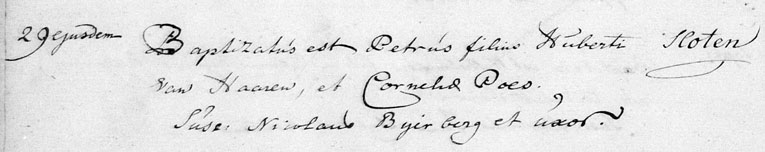 29 ejusdem Baptizatus est Petrus filius Huberti Sloten
van Haaren, et Corneliæ Poes.
Susc: Nicolaus Byirberg et uxor.